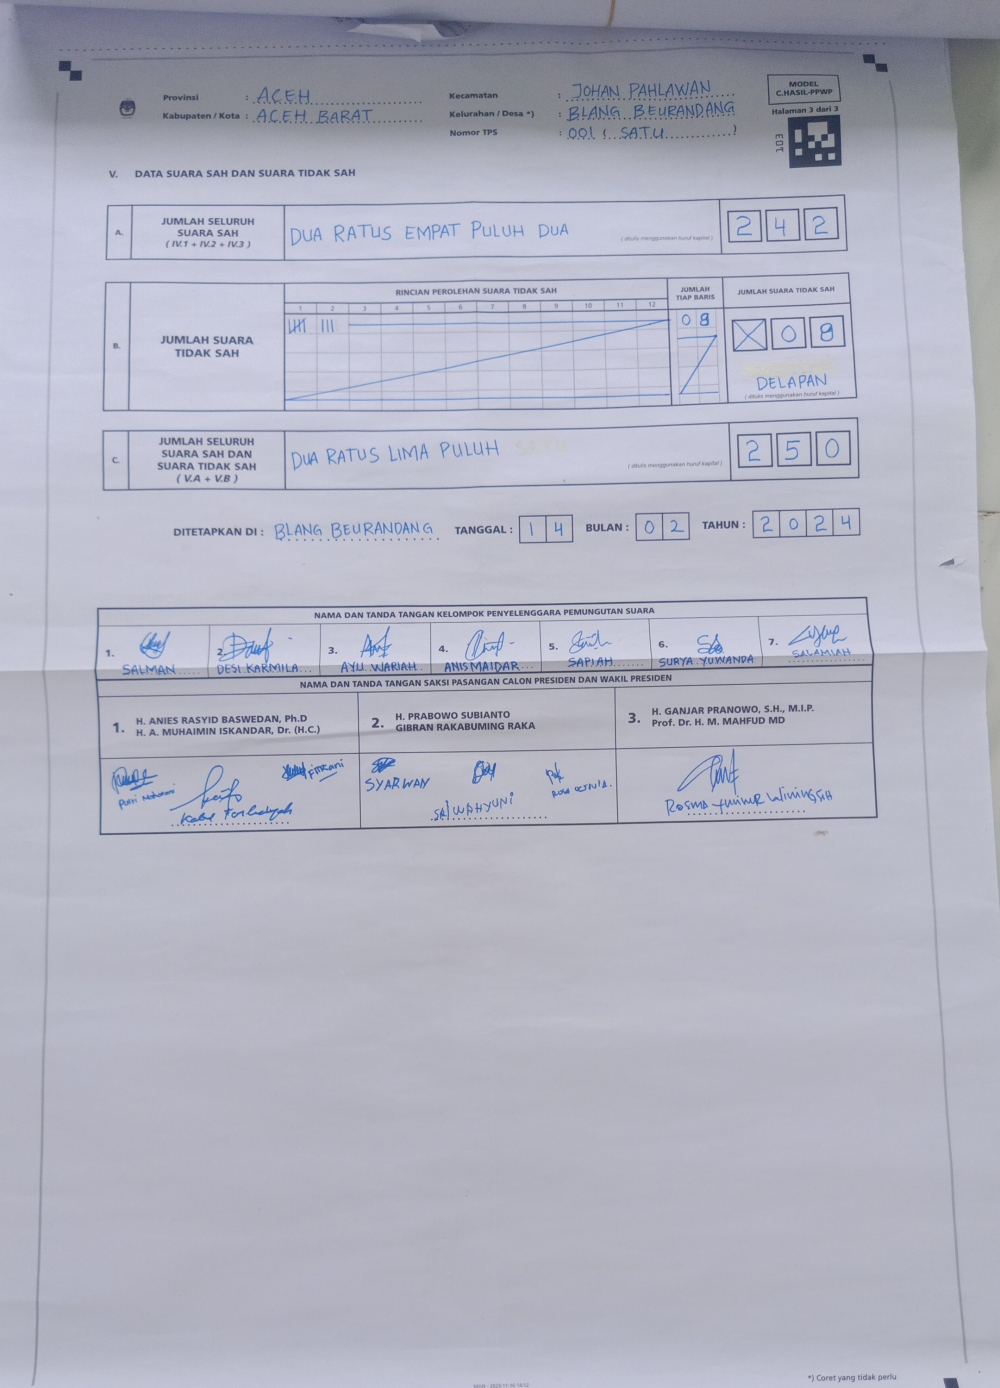 Provinsi : ACEH
Kabupaten / Kota : ACEH BARAT
Kecamatan : JOHAN PAHLAWAN
Kelurahan / Desa *) : BLANG BEURANDANG
Nomor TPS : 001 ( SATU )
MODEL
C.HASIL-PPWP
Halaman 3 dari 3
EDT
V. DATA SUARA SAH DAN SUARA TIDAK SAH
A. JUMLAH SELURUH SUARA SAH ( IV.1 + IV.2 + IV.3 ) DUA RATUS EMPAT PULUH DUA ( ditulis menggunakan huruf kapital ) 2 4 2
RINCIAN PEROLEHAN SUARA TIDAK SAH JUMLAH TIAP BARIS JUMLAH SUARA TIDAK SAH
1 2 3 4 5 6 7 8 9 10 11 12
B. JUMLAH SUARA TIDAK SAH 08 X 0 8
DELAPAN
( ditulis menggunakan huruf kapital )
C. JUMLAH SELURUH SUARA SAH DAN SUARA TIDAK SAH ( V.A + V.B ) DUA RATUS LIMA PULUH ( ditulis menggunakan huruf kapital ) 2 5 0
DITETAPKAN DI : BLANG BEURANDANG TANGGAL : 1 4 BULAN : 0 2 TAHUN : 2 0 2 4
NAMA DAN TANDA TANGAN KELOMPOK PENYELENGGARA PEMUNGUTAN SUARA
1. SALMAN 2. DESI KARMILA 3. AYU WARIAH 4. ANIS MAIDAR 5. SAPIAH 6. SURYA YUWANDA 7. SALAMIAH
NAMA DAN TANDA TANGAN SAKSI PASANGAN CALON PRESIDEN DAN WAKIL PRESIDEN
1. H. ANIES RASYID BASWEDAN, Ph.D
H. A. MUHAIMIN ISKANDAR, Dr. (H.C.)
2. H. PRABOWO SUBIANTO
GIBRAN RAKABUMING RAKA
3. H. GANJAR PRANOWO, S.H., M.I.P.
Prof. Dr. H. M. MAHFUD MD
Fitriani
SYARWAN
SRI WAHYUNI
*) Coret yang tidak perlu